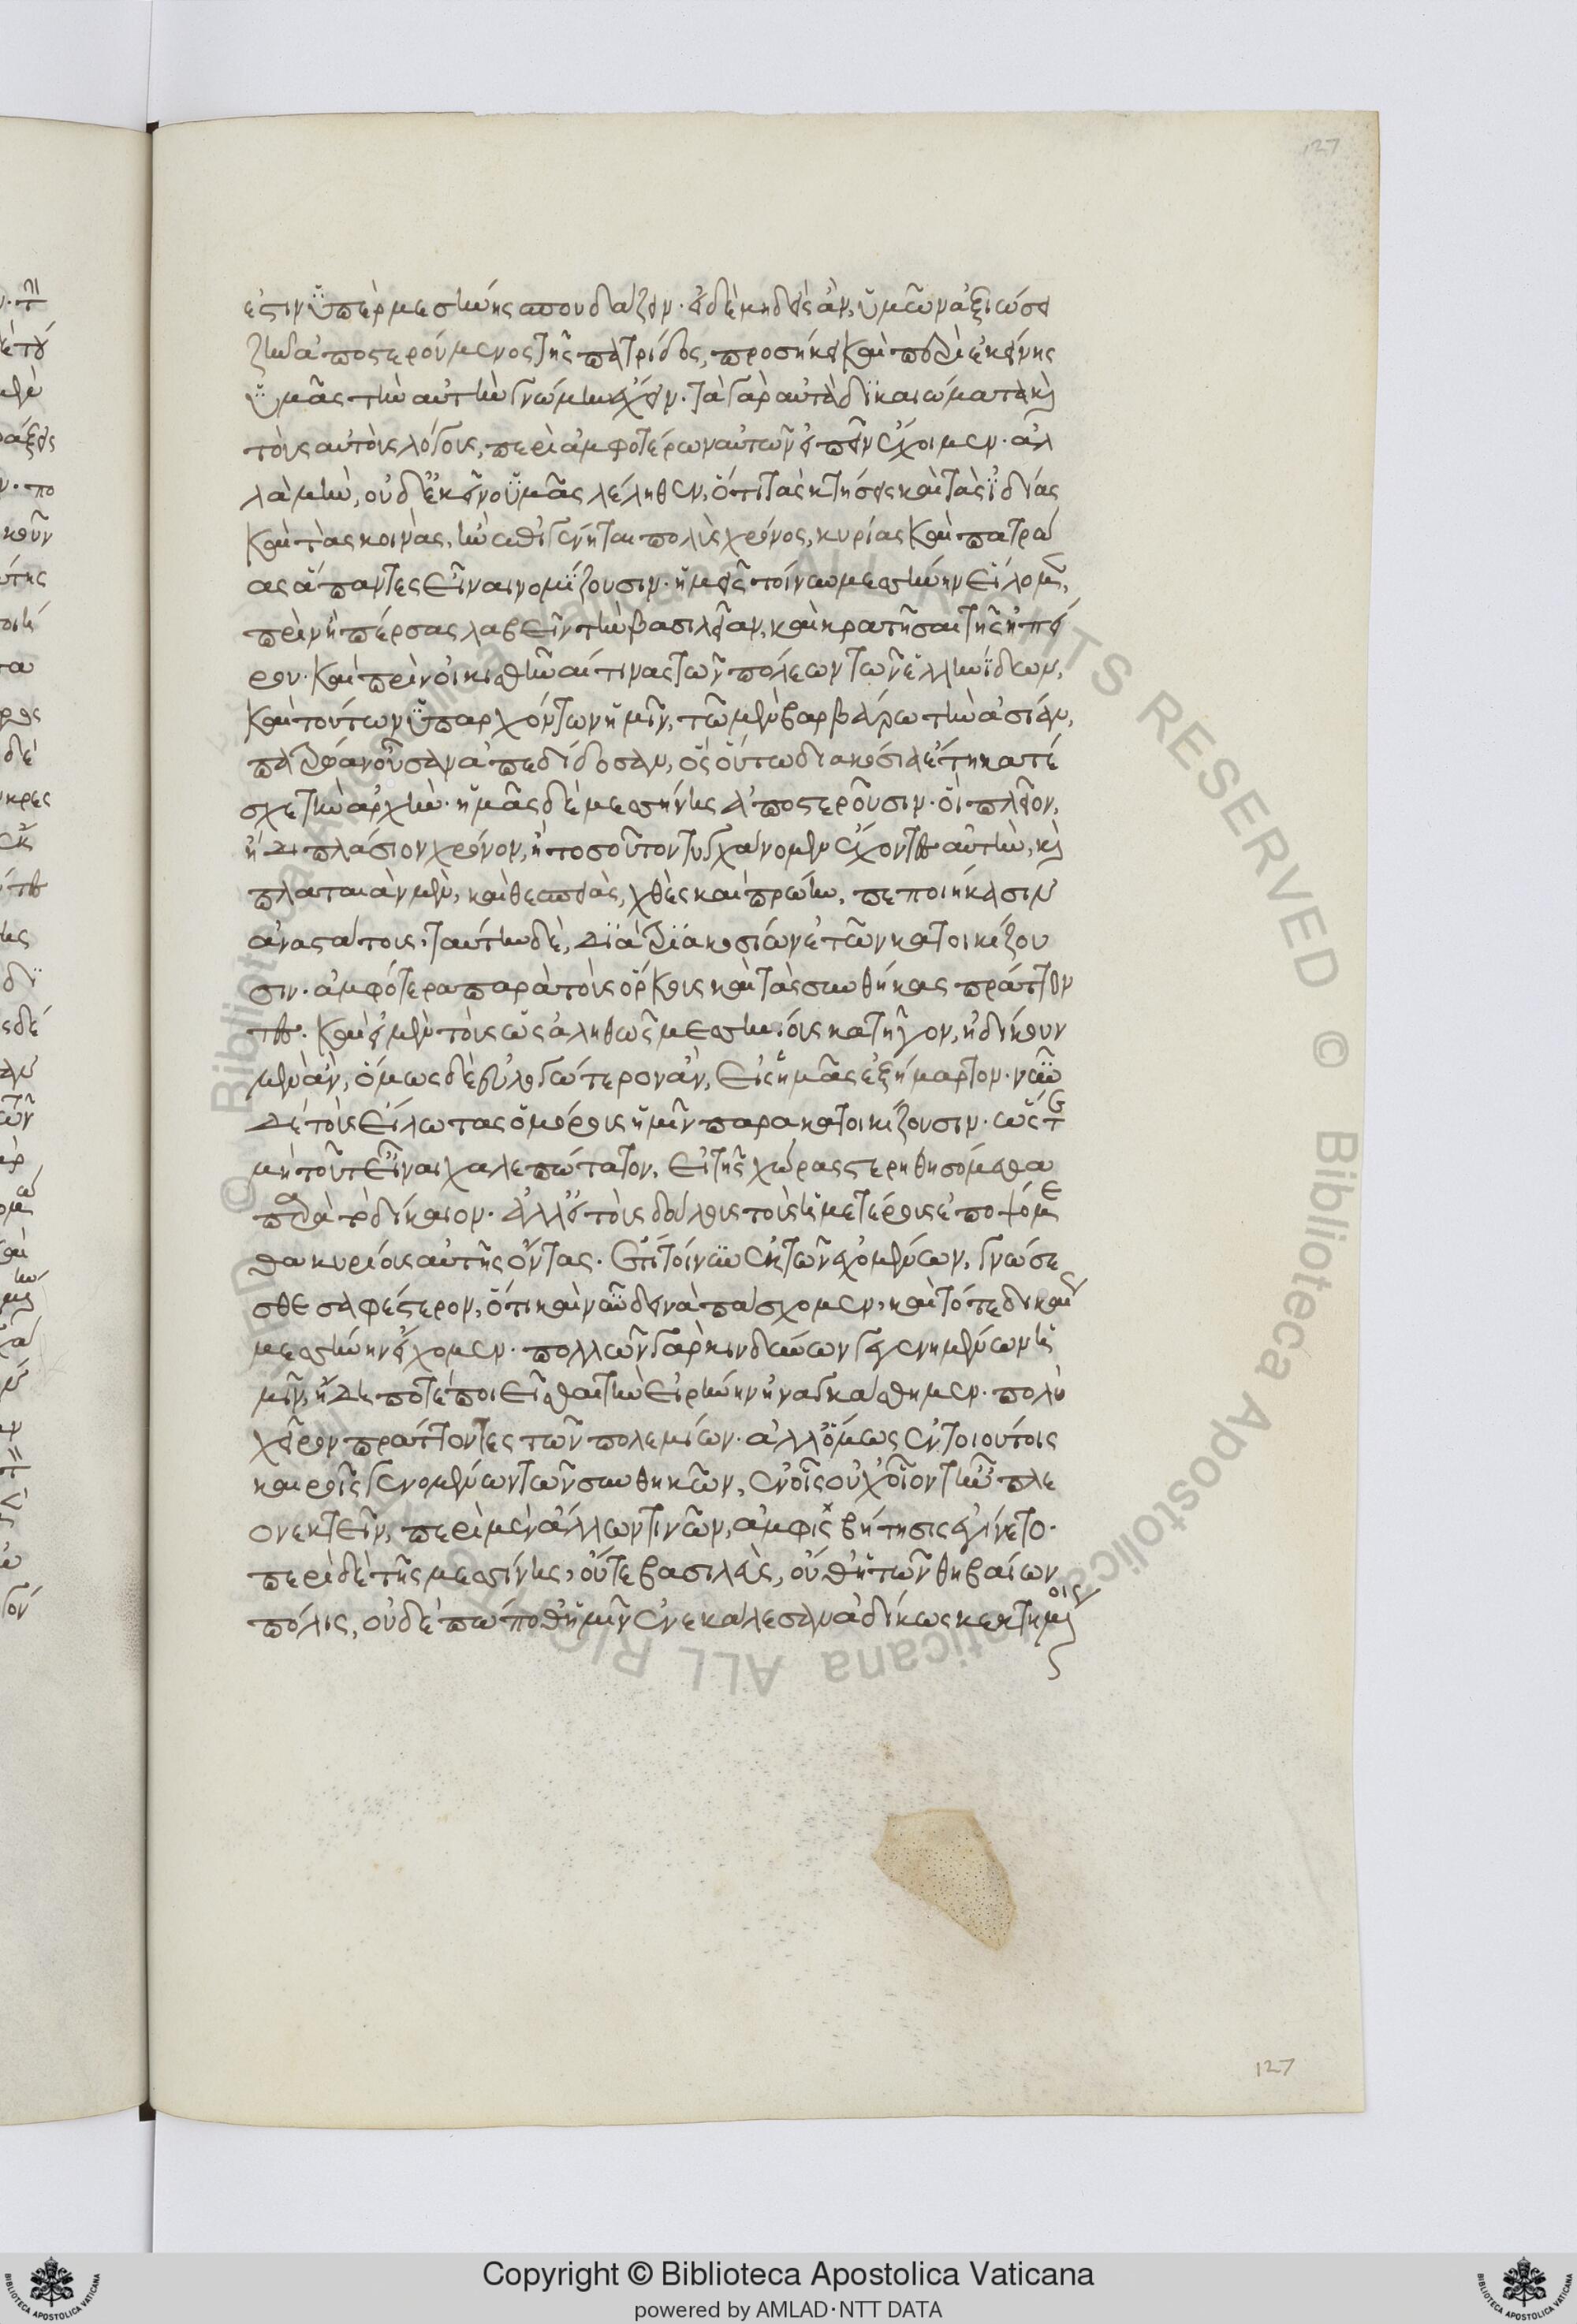 127
ἐστὶν ὑπὲρ μεσήνης σπουδάζειν· εἰ δὲ μηδεὶς ἂν ὑμῶν ἀξιώσειε
ζῆν ἀποστερούμενος τῆς πατρίδος, προσήκει καὶ περὶ ἐκείνης
ὑμᾶς τὴν αὐτὴν γνώμην ἔχειν. τὰ γὰρ αὐτὰ δικαιώματα καὶ
τοὺς αὐτοὺς λόγους, περὶ ἀμφοτέρων αὐτῶν εἰπεῖν ἔχοιμεν· ἀλ
λὰ μὴν, οὐδ' ἐκεῖνο ὑμᾶς λέληθεν, ὅτι τὰς κτήσεις καὶ τὰς ἰδίας
καὶ τὰς κοινὰς, ἢν ἐπιγένηται πολὺς χρόνος, κυρίας καὶ πατρώ
ας ἅπαντες εἶναι νομίζουσιν· ἡμεῖς τοίνυν μεσήνην εἵλομεν,
πρὶν ἢ πέρσας λαβεῖν τὴν βασιλείαν, καὶ κρατῆσαι τῆς ἠπεί
ρου· καὶ πρὶν οἰκισθῆναί τινας τῶν πόλεων τῶν ἑλληνίδων,
καὶ τούτων ὑπαρχόντων ἡμῖν, τῷ μὲν βαρβάρῳ τὴν ἀσίαν,
πατρῴαν οὖσαν ἀπεδίδοσαν, ὃς οὔπω διακόσια ἔτη κατέ
σχε τὴν ἀρχὴν· ἡμᾶς δὲ μεσήνης ἀποστεροῦσιν· οἳ πλεῖον,
ἢ διπλάσιον χρόνον, ἢ τοσοῦτον τυγχάνομεν ἔχοντες αὐτὴν, καὶ
πλαταιὰν μὲν, καὶ θεσπιὰς, χθὲς καὶ πρώην, πεποιήκασιν
ἀναστάτους, ταύτην δὲ, διὰ διακοσίων ἐτῶν κατοικίζου
σιν· ἀμφότερα παρὰ τοὺς ὅρκους καὶ τὰς συνθήκας πράττον
τες. καὶ εἰ μὲν τοὺς ὡς ἀληθῶς μεσηνίους κατῆγον, ἠδίκουν
μὲν ἂν, ὅμως δὲ εὐλογώτερον ἂν, εἰς ἡμᾶς ἐξήμαρτον· νῦν
δὲ τοὺς εἵλωτας ὁμόρους ἡμῖν παρακατοικίζουσιν· ὥστε
μὴ τοῦτ' εἶναι χαλεπώτατον, εἰ τῆς χώρας στερηθησόμεθα
παρὰ τὸ δίκαιον· ἀλλ' εἰ τοὺς δούλους τοὺς ἡμετέρους ἐποψόμε
θα κυρίους αὐτῆς ὄντας. ἔτι τοίνυν ἐκ τῶν ἐχομένων, γνώσε
σθε σαφέστερον, ὅτι καὶ νῦν δεινὰ πάσχομεν, καὶ τότε δικαίως
μεσήνην εἴχομεν· πολλῶν γὰρ κινδύνων γεγενημένων ἡ
μῖν, ἤδη ποτὲ ποιεῖσθαι τὴν εἰρήνην ἠναγκάσθημεν· πολὺ
χεῖρον πράττοντες τῶν πολεμίων· ἀλλ' ὅμως ἐν τοιούτοις
καιροῖς γενομένων τῶν συνθηκῶν, ἐν οἷς οὐχ οἷόν τ' ἦν πλε
ονεκτεῖν, περὶ μὲν ἄλλων τινῶν, ἀμφισβήτησις ἐγίνετο·
περὶ δὲ τῆς μεσήνης, οὔτε βασιλεὺς, οὔθ' ἡ τῶν θηβαίων
πόλις, οὐδὲ πώποθ' ἡμῖν ἐνεκάλεσαν ἀδίκως κεκτημένοις
127
Copyright © Biblioteca Apostolica Vaticana
powered by AMLAD·NTT DATA